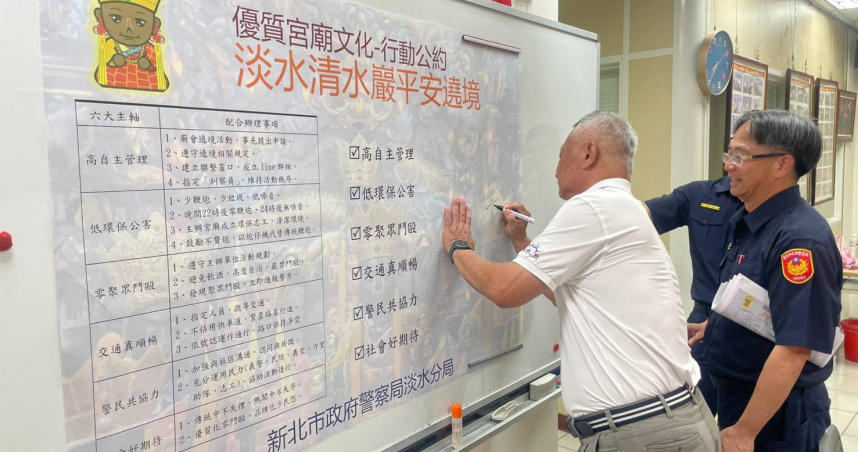 優質宮廟文化-行動公約
淡水清水嚴平安遶境
六大主軸 配合辦理事項
高自主管理
1、廟會遶境活動，事先提出申請。
2、遵守遶境相關規定。
3、建立聯繫窗口，成立line群組。
4、指定「糾察員」，維持活動秩序。
低環保公害
1、少鞭炮、少垃圾、低噪音。
2、晚間22時後零鞭炮、24時後無噪音。
3、主辦宮廟成立環保志工，清潔環境。
4、鼓勵不費炮，以炮仔機代替傳統鞭炮。
零聚眾鬥毆
1、遵守主辦單位活動規劃。
2、避免飲酒，高度自治，嚴禁鬥毆。
3、發現聚眾鬥毆，立即通報警方。
交通真順暢
1、指定人員，疏導交通。
2、不佔用快車道，緊靠路肩行進。
3、依號誌運作通行，路口保持淨空。
警民共協力
1、加強與社區溝通，認同與共識。
2、充分運用民力(義警、民防、義交、守望
助隊、志工)，協助活動進行。
會好期待
1、傳統中不失禮，熱鬧中不失序。
2、優質化零鬥毆，品牌化少民怨。
☑高自主管理
☑低環保公害
☑零聚眾鬥毆
☑交通真順暢
☑警民共協力
☑社會好期待
新北市政府警察局淡水分局